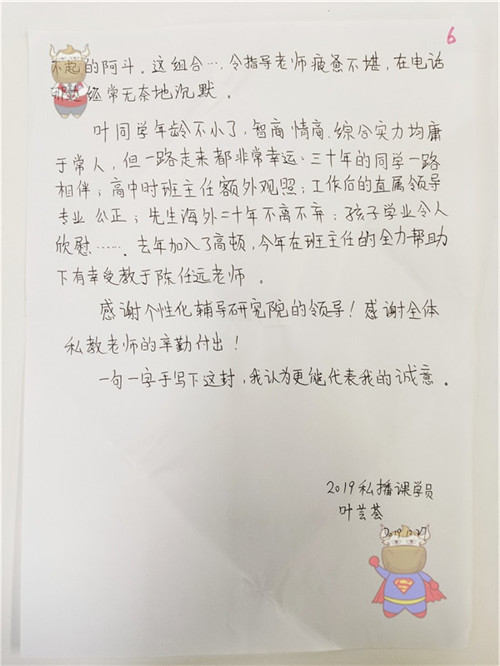 6
不起的阿斗。这组合…,令指导老师疲惫不堪,在电话
那边经常无奈地沉默。
叶同学年龄不小了,智商、情商、综合实力均庸
于常人,但一路走来都非常幸运:三十年的同学一路
相伴;高中时班主任额外观照;工作后的直属领导
专业公正;先生海外二十年不离不弃;孩子学业令人
欣慰……。去年加入了高顿,今年在班主任的全力帮助
下有幸受教于陈任远老师。
感谢个性化辅导研究院的领导!感谢全体
私教老师的辛勤付出!
一句一字手写下这封,我认为更能代表我的诚意。
2019私播课学员
叶芸荟